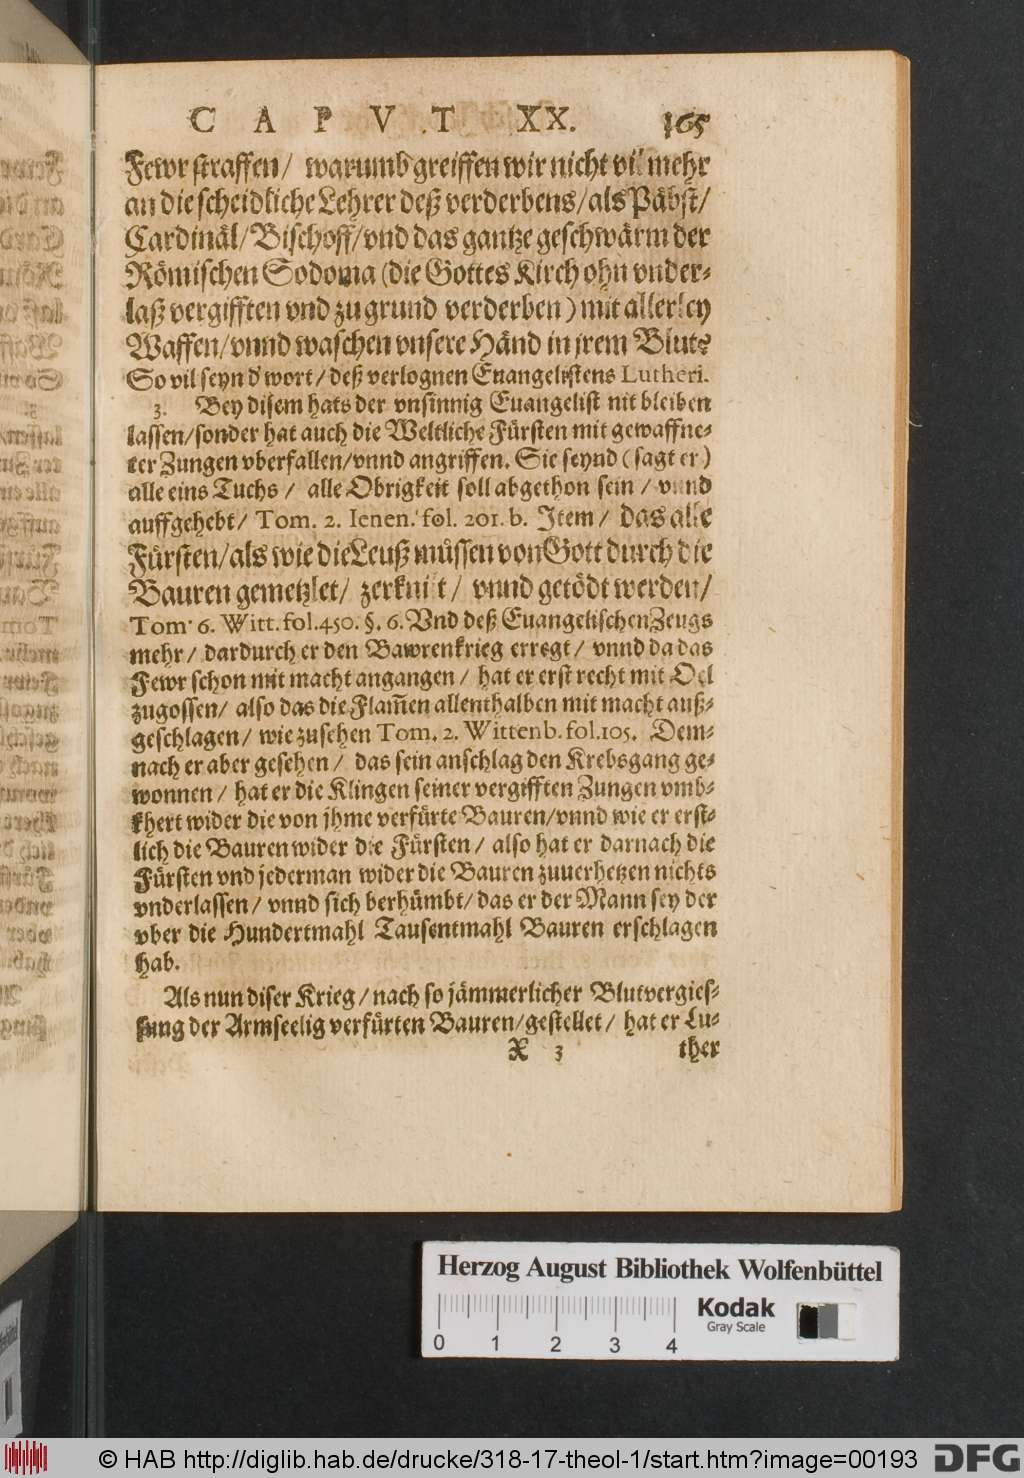 CAPVT XX. 165
Fewr straffen / warumb greiffen wir nicht vil mehr
an die scheidliche Lehrer deß verderbens / als Päbst /
Cardinäl / Bischoff / vnd das gantze geschwärm der
Römischen Sodoma (die Gottes Kirch ohn vnder-
laß vergifften vnd zu grund verderben) mit allerley
Waffen / vnnd waschen vnsere Händ in jrem Blut?
So vil seyn d'wort / deß verlognen Euangelistens Lutheri.
3. Bey disem hats der vnsinnig Euangelist nit bleiben
lassen / sonder hat auch die Weltliche Fürsten mit gewaffne-
ter Zungen vberfallen / vnnd angriffen. Sie seynd (sagt er)
alle eins Tuchs / alle Obrigkeit soll abgethon sein / vnnd
auffgehebt / Tom. 2. Ienen. fol. 201. b. Item / das alle
Fürsten / als wie die Leuß müssen von Gott durch die
Bauren gemetzlet / zerknit / vnnd getödt werden /
Tom. 6. Witt. fol. 450. §. 6. Vnd deß Euangelischen Zeugs
mehr / dardurch er den Bawrenkrieg erregt / vnnd da das
Fewr schon mit macht angangen / hat er erst recht mit Oel
zugossen / also das die Flam̃en allenthalben mit macht auß-
geschlagen / wie zusehen Tom. 2. Wittenb. fol. 105. Dem-
nach er aber gesehen / das sein anschlag den Krebsgang ge-
wonnen / hat er die Klingen seiner vergifften Zungen vmb-
khert wider die von jhme verfürte Bauren / vnnd wie er erst-
lich die Bauren wider die Fürsten / also hat er darnach die
Fürsten vnd jederman wider die Bauren zuuerhetzen nichts
vnderlassen / vnnd sich berhümbt / das er der Mann sey der
vber die Hundertmahl Tausentmahl Bauren erschlagen
hab.
Als nun diser Krieg / nach so jämmerlicher Blutvergies-
sung der Armseelig verfürten Bauren / gestellet / hat er Lu-
X 3 ther
Herzog August Bibliothek Wolfenbüttel
Kodak
Gray Scale
0 1 2 3 4
© HAB http://diglib.hab.de/drucke/318-17-theol-1/start.htm?image=00193
DFG